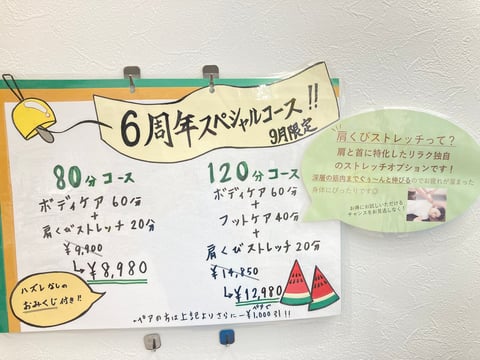 6周年スペシャルコース!!
9月限定
80分コース
ボディケア60分
+
肩くびストレッチ20分
¥9,900
↳¥8,980
120分コース
ボディケア60分
+
フットケア40分
+
肩くびストレッチ20分
¥14,850
↳¥12,980
ハズレなしの
おみくじ付き!!
-ペアの方は上記よりさらに-¥1,000引!!
肩くびストレッチって?
肩と首に特化したリラク独自
のストレッチオプションです!
深層の筋肉までぐぅーんと伸びるのでお疲れが溜まった
身体にぴったりです◎
お得にお試しいただける
チャンスをお見逃しなく!